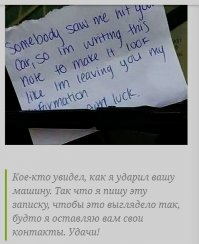 Somebody saw me hit your
car, so im writing this
note to make it look
like im leaving you my
information
good luck.
Кое-кто увидел, как я ударил вашу
машину. Так что я пишу эту
записку, чтобы это выглядело так,
будто я оставляю вам свои
контакты. Удачи!